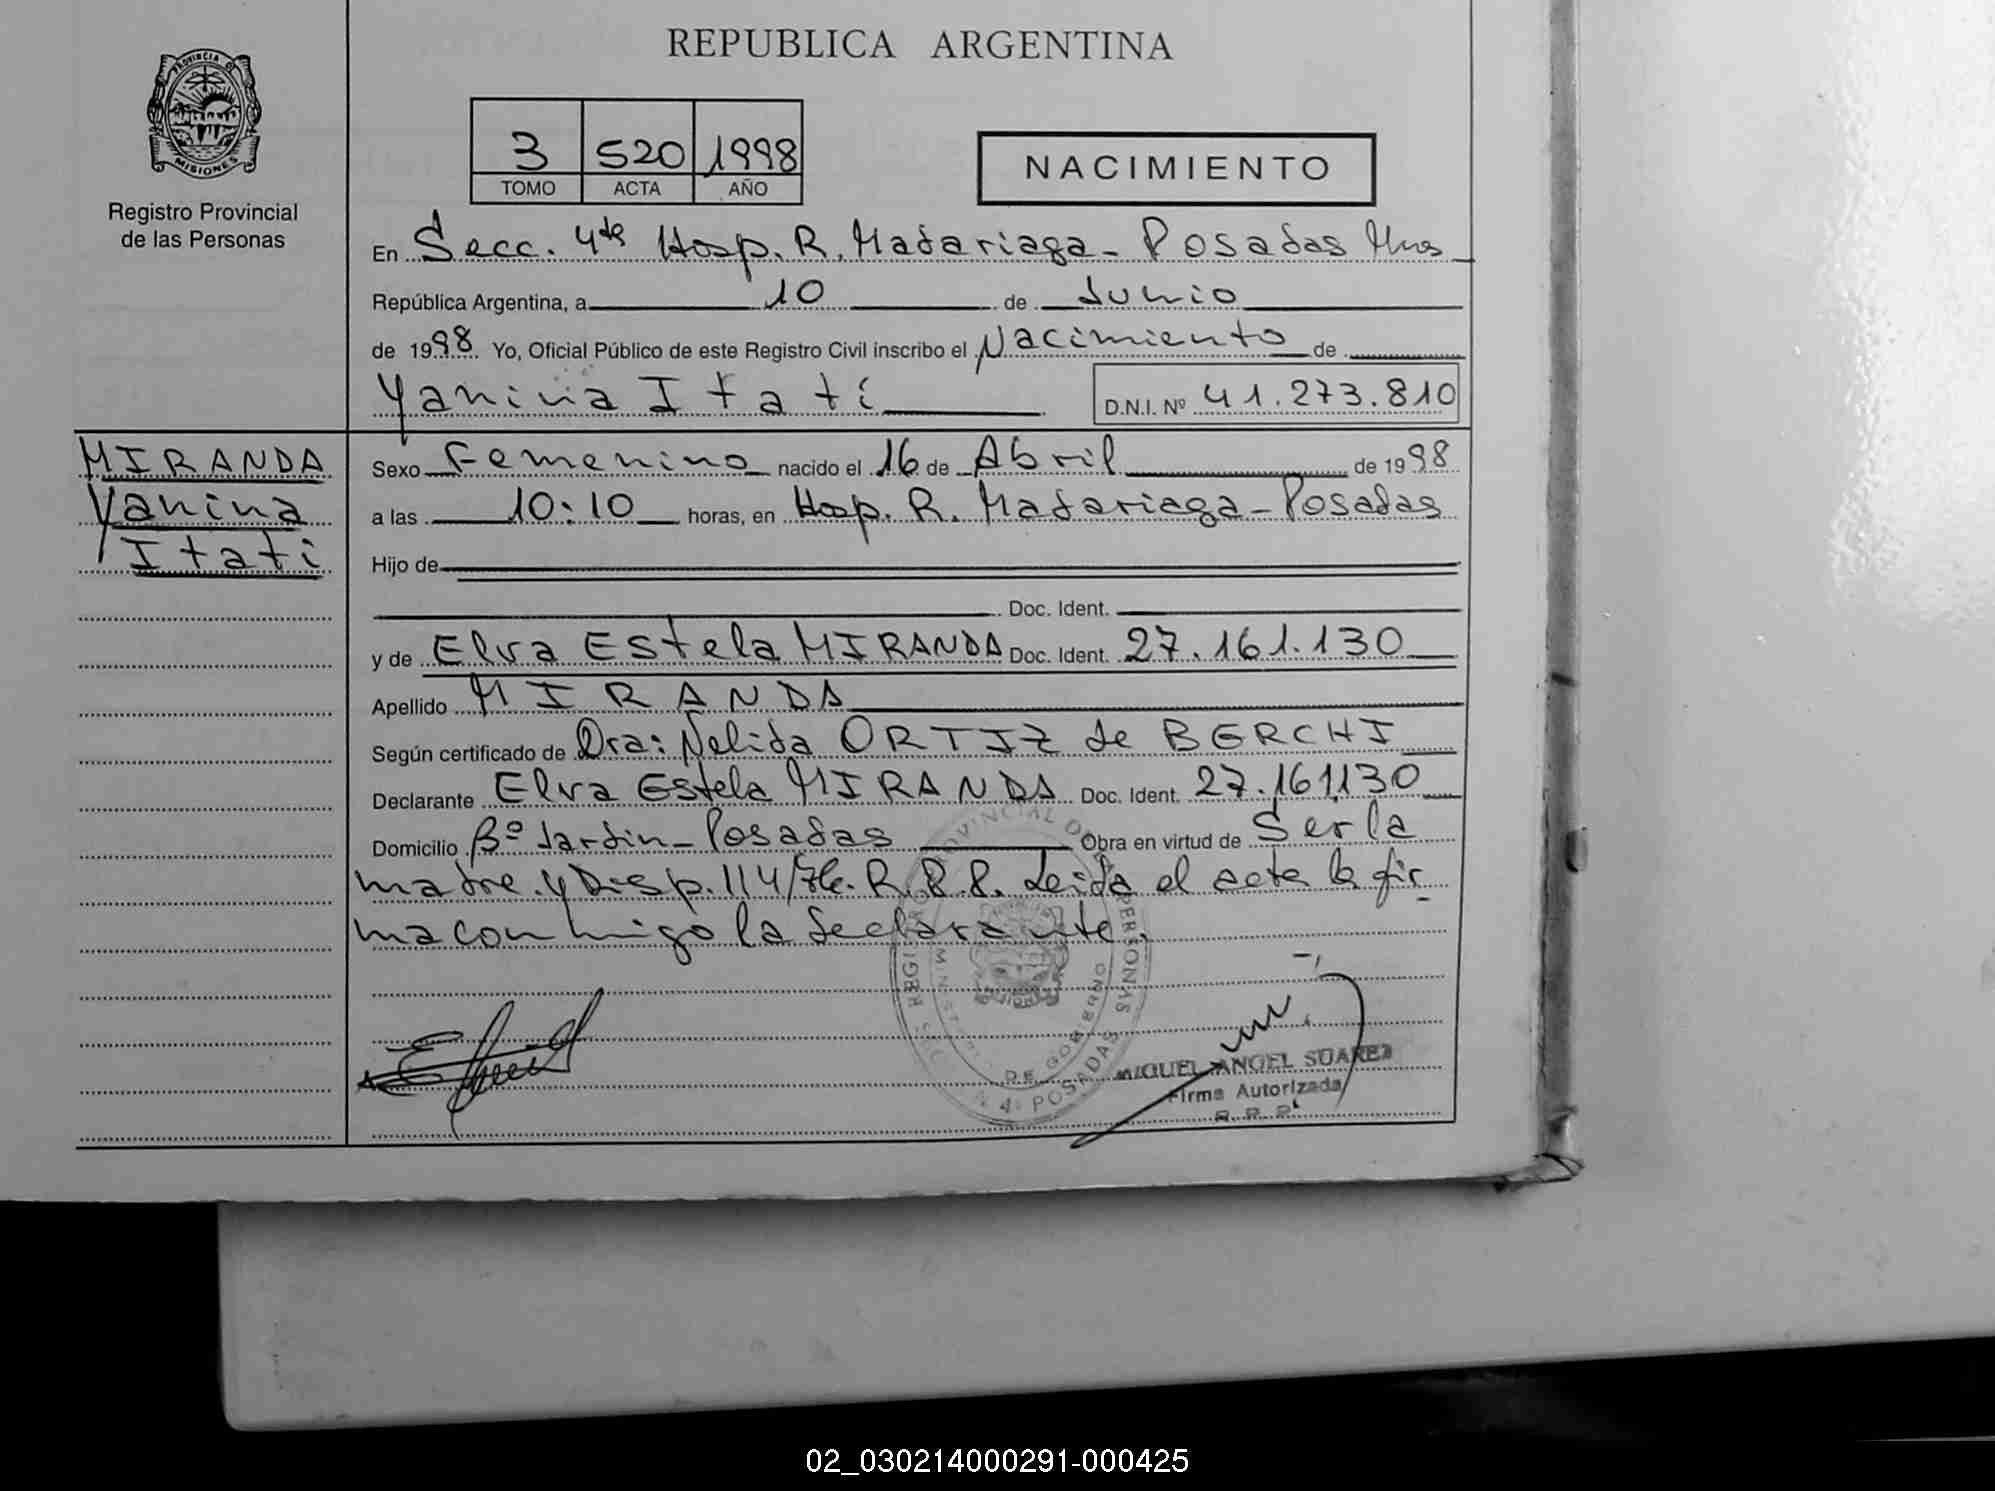 REPUBLICA ARGENTINA
PROVINCIA DE
MISIONES
Registro Provincial
de las Personas
3 520 1998
TOMO ACTA AÑO
NACIMIENTO
En Secc. 4ta Hosp. R. Madariaga - Posadas Mnes
República Argentina, a 10 de Junio
de 1998 Yo, Oficial Público de este Registro Civil inscribo el Nacimiento de
Yanina Itatí
D.N.I. Nº 41.273.810
MIRANDA
Yanina
Itati
Sexo Femenino nacido el 16 de Abril de 1998
a las 10:10 horas, en Hosp. R. Madariaga - Posadas
Hijo de
Doc. Ident.
y de Elva Estela MIRANDA Doc. Ident. 27.161.130
Apellido MIRANDA
Según certificado de Dra: Nelida ORTIZ de BERCHI
Declarante Elva Estela MIRANDA Doc. Ident. 27.161130
Domicilio Bº Jardin - Posadas Obra en virtud de Ser la
madre y Disp. 114/76. R.P.P. Leida el acta la fir
ma conmigo la declarante.
REGISTRO PROVINCIAL DE LAS PERSONAS
MINISTERIO DE GOBIERNO
SECC. N 4ª POSADAS
MIGUEL ANGEL SUAREZ
Firma Autorizada
R. P. P.
02_030214000291-000425